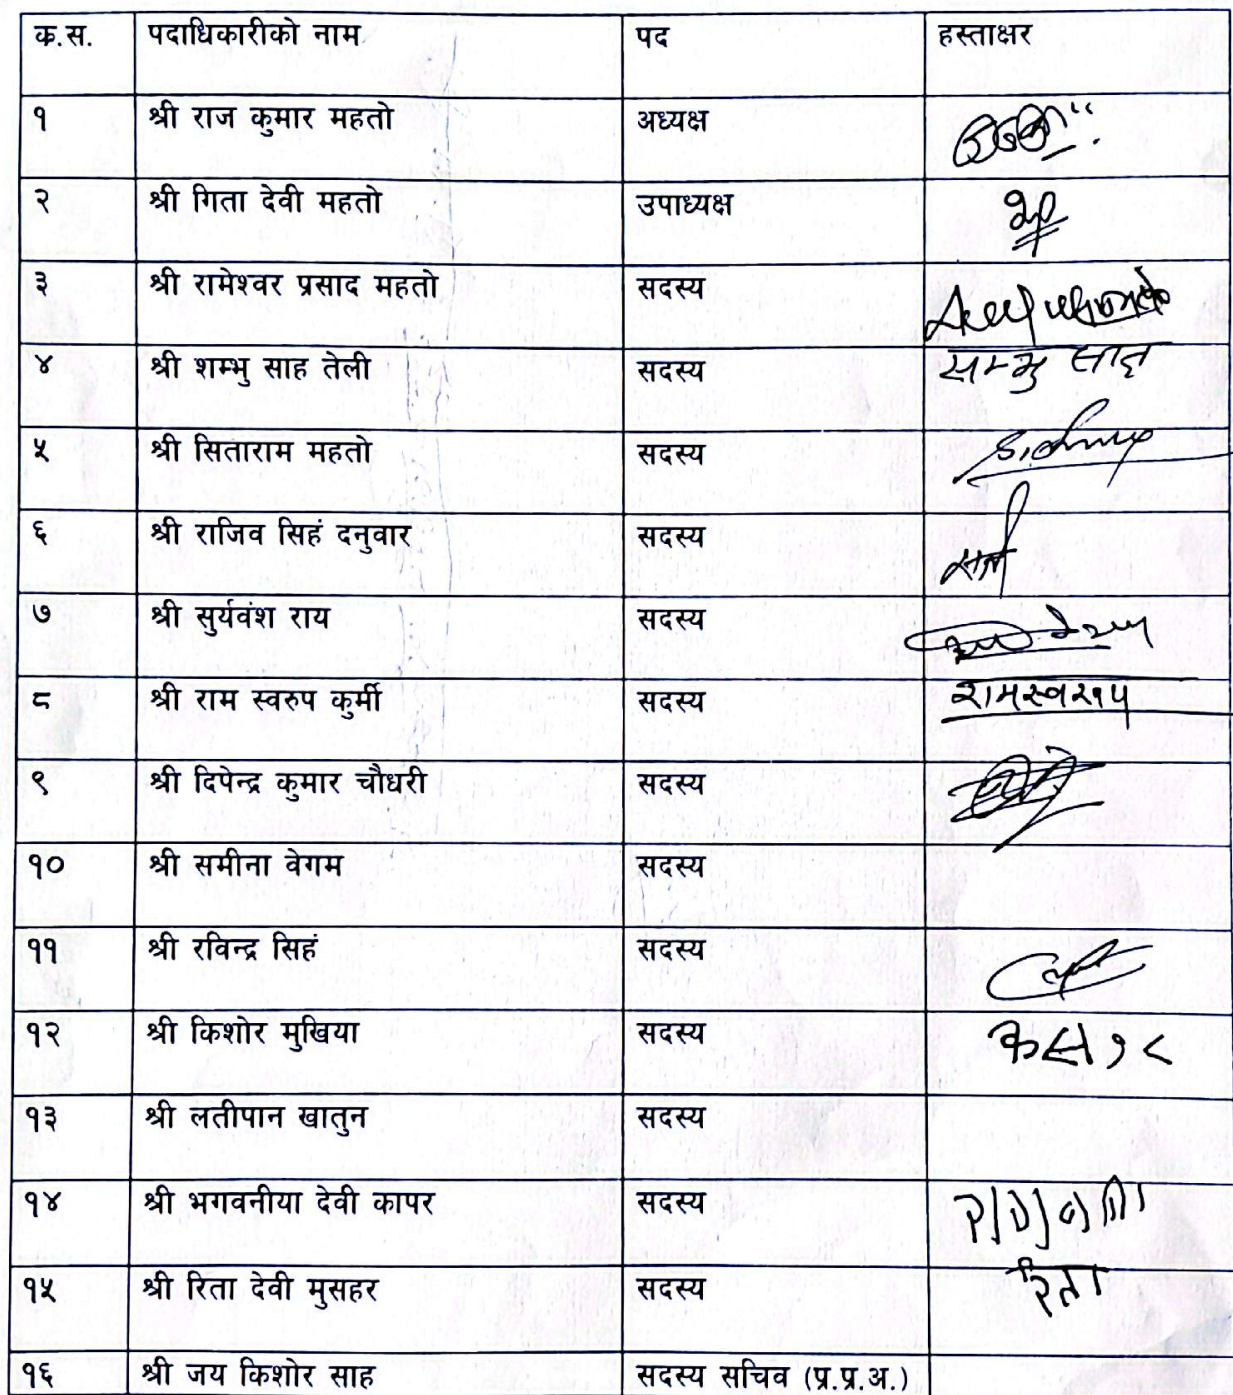 क.स. पदाधिकारीको नाम पद हस्ताक्षर
१ श्री राज कुमार महतो अध्यक्ष
२ श्री गिता देवी महतो उपाध्यक्ष
३ श्री रामेश्वर प्रसाद महतो सदस्य
४ श्री शम्भु साह तेली सदस्य सम्भु साह
५ श्री सिताराम महतो सदस्य
६ श्री राजिव सिहं दनुवार सदस्य
७ श्री सुर्यवंश राय सदस्य
८ श्री राम स्वरुप कुर्मी सदस्य रामस्वरुप
९ श्री दिपेन्द्र कुमार चौधरी सदस्य
१० श्री समीना वेगम सदस्य
११ श्री रविन्द्र सिहं सदस्य
१२ श्री किशोर मुखिया सदस्य
१३ श्री लतीपान खातुन सदस्य
१४ श्री भगवनीया देवी कापर सदस्य
१५ श्री रिता देवी मुसहर सदस्य रिता
१६ श्री जय किशोर साह सदस्य सचिव (प्र.प्र.अ.)